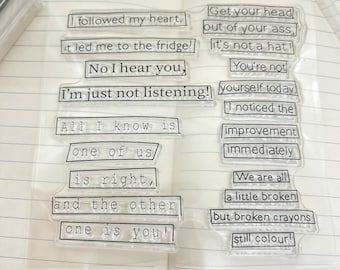 I followed my heart,
it led me to the fridge!
No I hear you,
I'm just not listening!
All I know is
one of us
is right,
and the other
one is you!
Get your head
out of your ass,
it's not a hat!
You're not
yourself today
I noticed the
improvement
immediately
We are all
a little broken
but broken crayons
still colour!